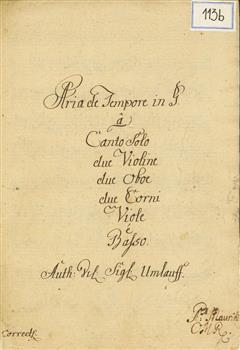 113b
Aria de Tempore in
à
Canto Solo
due Violine
due Oboe
due Corni
Viole
è
Basso.
Auth: Del Sigl Umlauff.
Correct